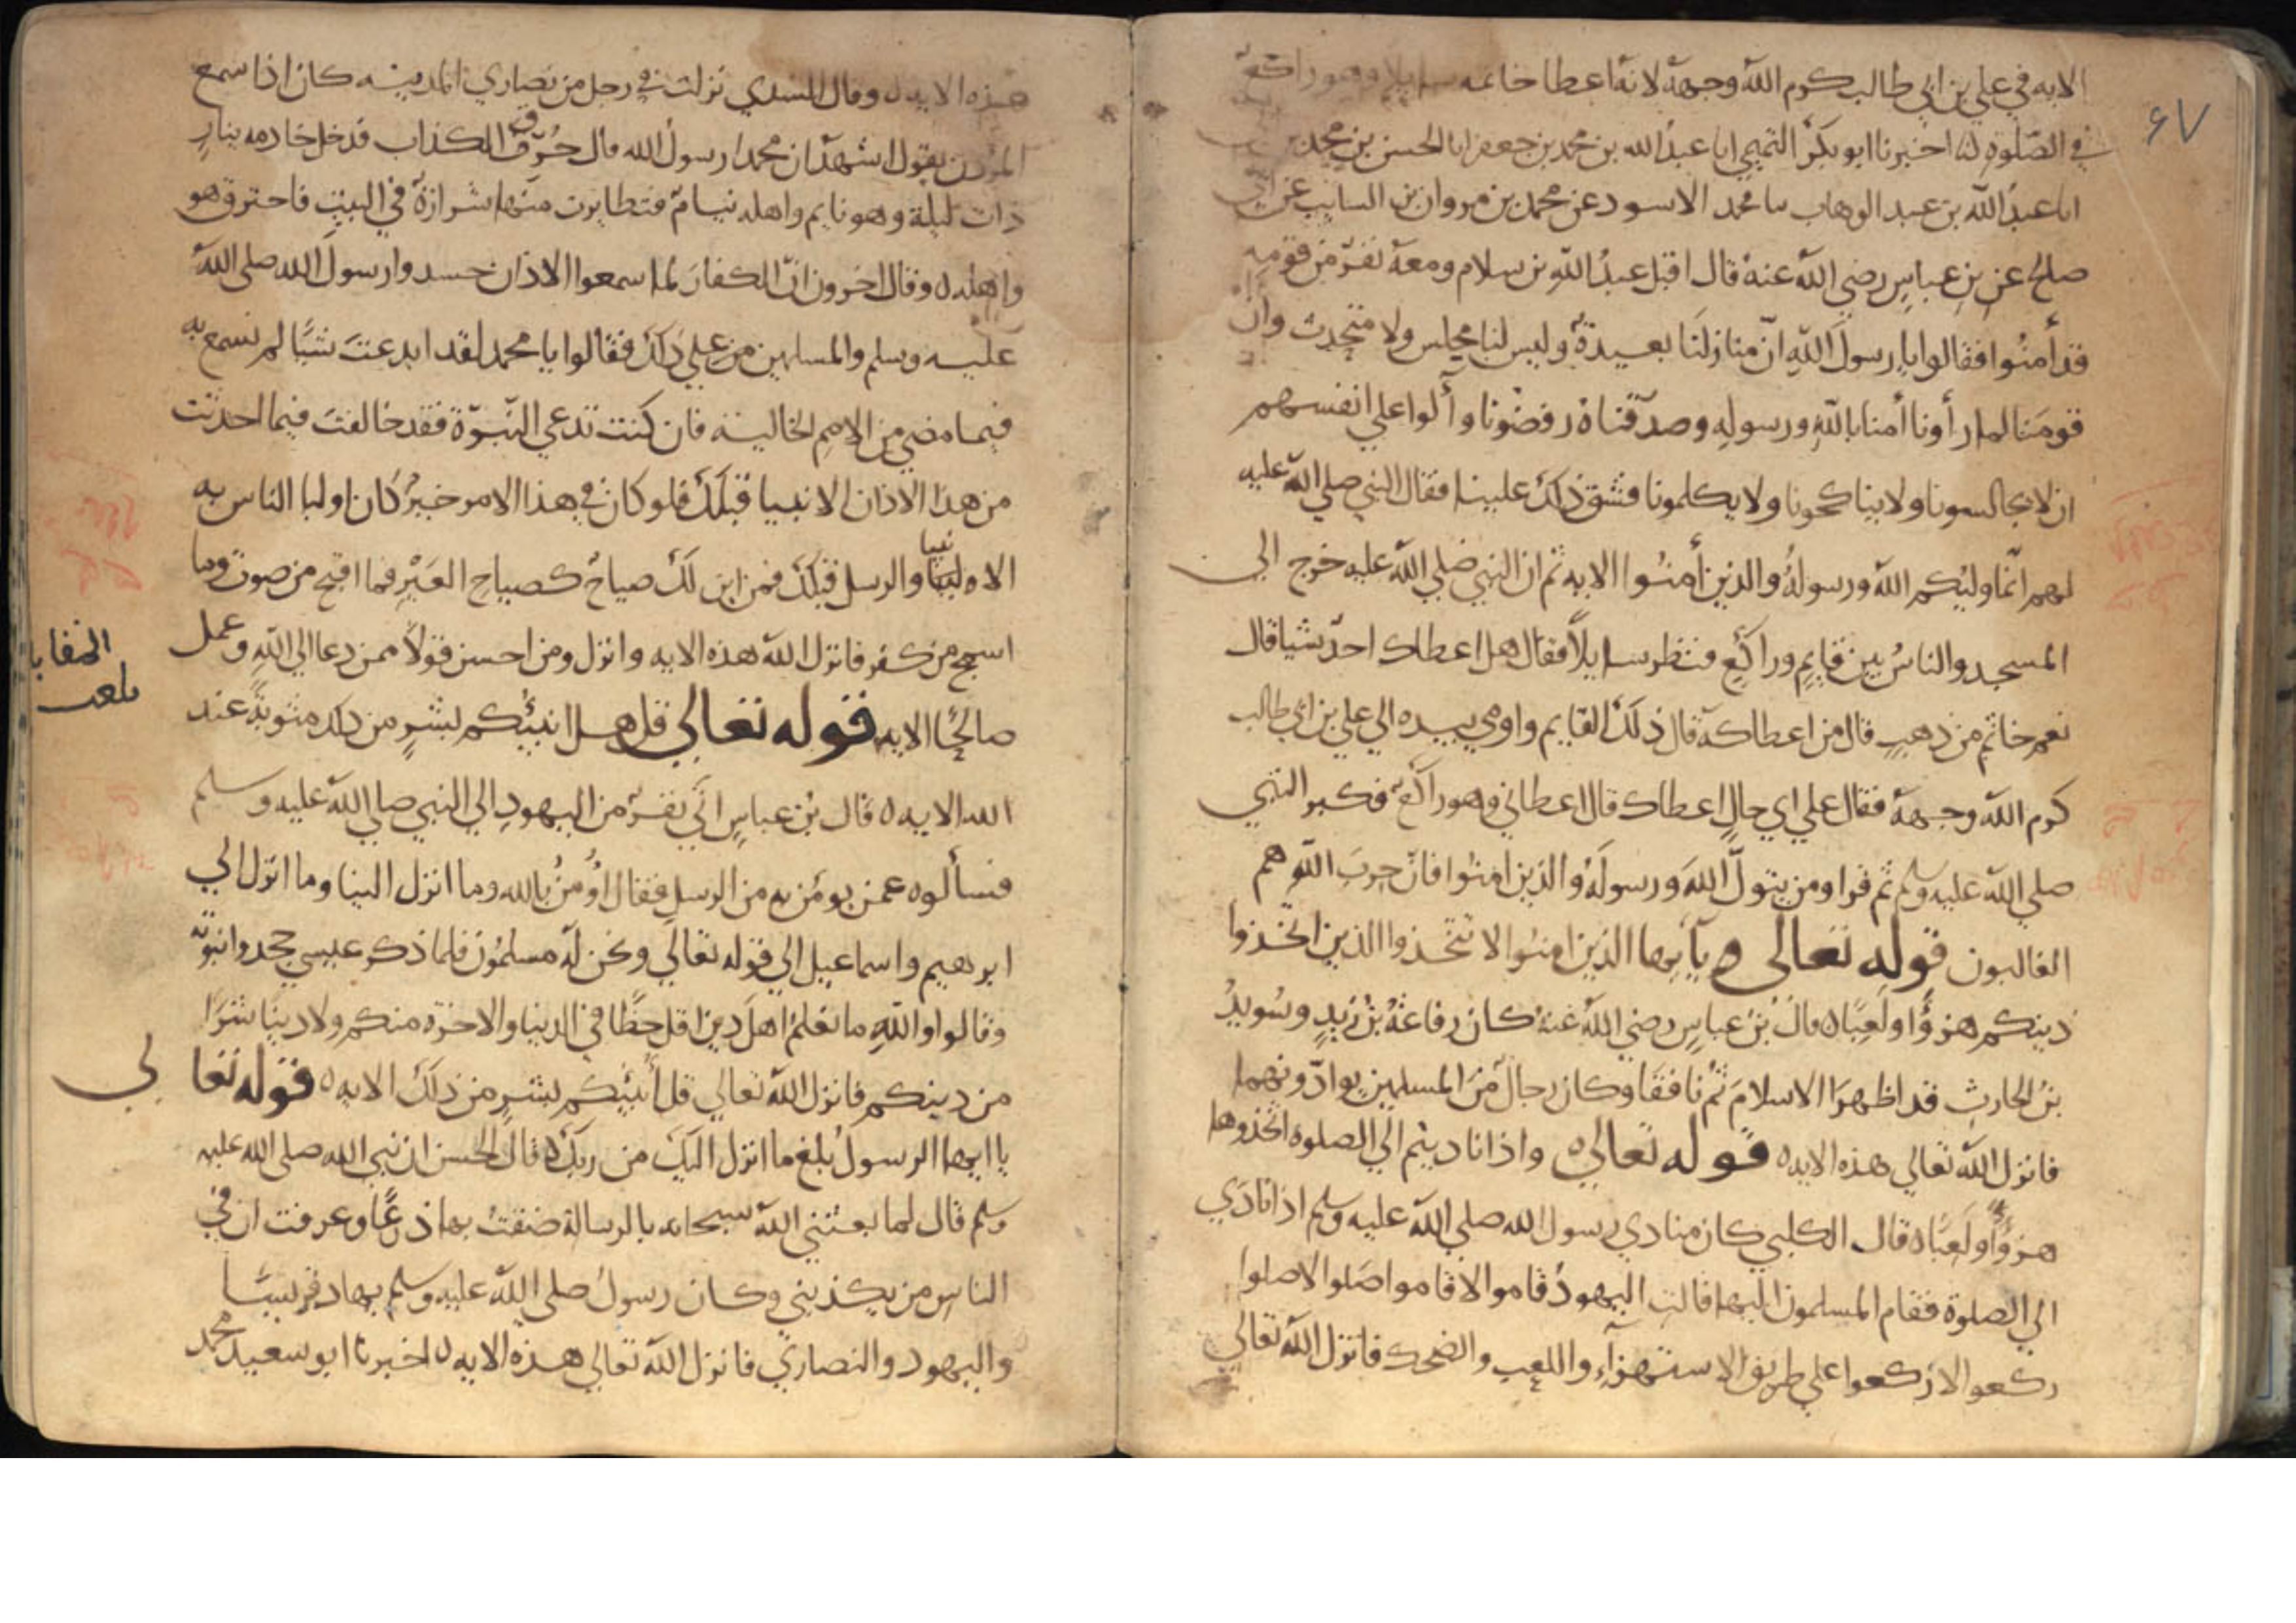 ٦٧
الايه في علي بن ابي طالب كرم الله وجهه لانه اعطا خاتمه سايلا وهو راكع
في الصلوة اخبرنا ابو بكر التميمي انا عبد الله بن محمد بن جعفر انا الحسن بن محمد
انا عبد الله بن عبد الوهاب سا محمد الاسود عن محمد بن مروان بن السايب عن ابي
صالح عن بن عباس رضي الله عنه قال اقبل عبد الله بن سلام ومعه نفر من قومه
قد أمنوا فقالوا يا رسول الله ان منازلنا بعيدة وليس لنا مجلس ولا متحدث وان
قومنا لما رأونا أمنا بالله ورسوله وصدقناه رفضونا وآلوا علي انفسهم
ان لا يجالسونا ولا يناكحونا ولا يكلمونا فشق ذلك علينا فقال النبي صلي الله عليه
لهم انما وليكم الله ورسوله والذين أمنوا الايه ثم ان النبي صلي الله عليه خرج الي
المسجد والناس بين قايم وراكع فنظر سايلاً فقال هل اعطاك احد شيا قال
نعم خاتم من ذهب قال من اعطاكه قال ذلك القايم واومي بيده الي علي بن ابي طالب
كرم الله وجهه فقال علي اي حال اعطاك قال اعطاني وهو راكع فكبر النبي
صلي الله عليه وسلم ثم قرا ومن يتول الله ورسوله والذين امنوا فان حزب الله هم
الغالبون قوله تعالى يآيها الذين امنوا لا تتخذوا الذين اتخذوا
دينكم هزؤًا ولعبًا ه قال بن عباس رضي الله عنه كان رفاعة بن زيد وسويد
بن الحارث قد اظهرا الاسلام ثم نافقا وكان رجال من المسلمين يوادونهما
فانزل الله تعالي هذه الايه ه قوله تعالي ه واذا ناديتم الي الصلوه اتخذوها
هزؤًا ولعبًا ه قال الكلبي كان منادي رسول الله صلي الله عليه وسلم اذا نادي
الي الصلوة فقام المسلمون اليها قالت اليهود قاموا لا قاموا صلوا لا صلوا
ركعوا لا ركعوا علي طريق الاستهزآء واللعب والضحك فانزل الله تعالي
هذه الايه ه وقال السدي نزلت في رجل من نصاري المدينه كان اذا سمع
المؤذن يقول اشهد ان محمدا رسول الله قال حُرّق الكذاب فدخل خادمه بنارٍ
ذات ليلة وهو نايم واهله نيام فتطايرت منها شرازة في البيت فاحترق هو
واهله ه وقال اخرون ان الكفار لما سمعوا الاذان حسدوا رسول الله صلي الله
عليه وسلم والمسلمين من علي ذلك فقالوا يا محمد لقد ابدعت شيًا لم نسمع به
فيما مضي من الامم الخالية فان كنت تدعي النبوة فقد خالفت فيما احدثت
من هذا الاذان الانبيا قبلك فلو كان في هذا الامر خير كان اولا الناس به
الانبيا والرسل قبلك فمن اين لك صياح كصياح العير فما اقبح من صوت وما
اسمج من كفر فانزل الله هذه الايه وانزل ومن احسن قولاً ممن دعا الي الله وعمل
صالحًا الايه قوله تعالي قل هل انبيكم بشر من ذلك مثوبة عند
الله الايه ه قال بن عباس اتي نفر من اليهود الي النبي صلي الله عليه وسلم
فسألوه عمن يومن به من الرسل فقال اومن بالله وما انزل الينا وما انزل الي
ابرهيم واسماعيل الي قوله تعالي ونحن له مسلمون فلما ذكر عيسي جحدوا نبوته
وقالوا والله ما نعلم اهل دين اقل حظًا في الدينا والاخرة منكم ولا دينًا شرًا
من دينكم فانزل الله تعالي قل أنبيكم بشر من ذلك الايه ه قوله تعالي
يا ايها الرسول بلغ ما انزل اليك من ربك ه قال الحسن ان نبي الله صلي الله عليه
وسلم قال لما بعثني الله سبحانه بالرسالة ضقت بها ذرعًا وعرفت ان في
الناس من يكذبني وكان رسول صلي الله عليه وسلم يهاد قريشًا
واليهود والنصاري فانزل الله تعالي هذه الايه ه اخبرنا ابو سعيد محمد